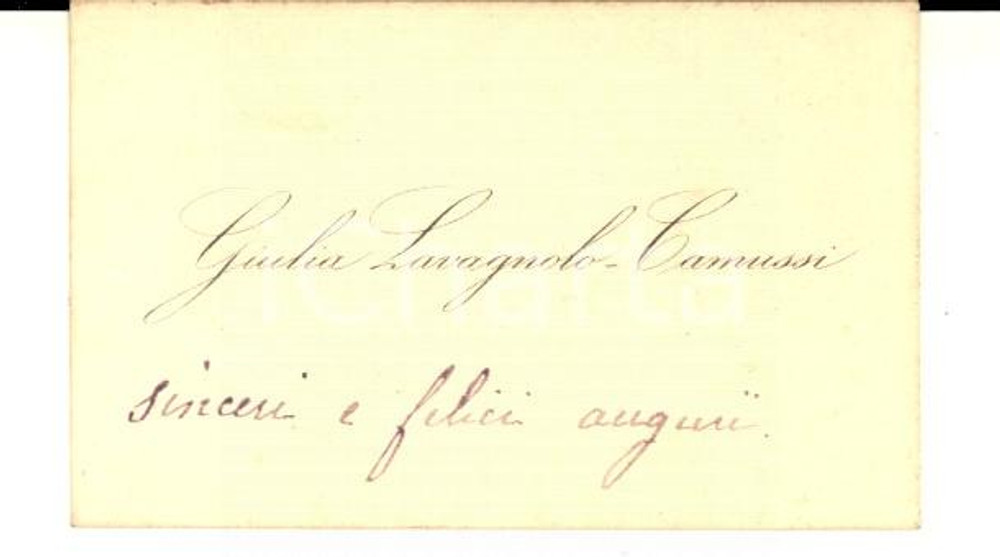 Giulia Lavagnolo-Camussi
iCharta
sinceri e felici augurii.